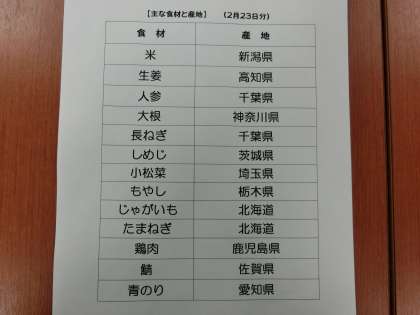 【主な食材と産地】 (2月23日分)
食 材 産 地
米 新潟県
生姜 高知県
人参 千葉県
大根 神奈川県
長ねぎ 千葉県
しめじ 茨城県
小松菜 埼玉県
もやし 栃木県
じゃがいも 北海道
たまねぎ 北海道
鶏肉 鹿児島県
鯖 佐賀県
青のり 愛知県